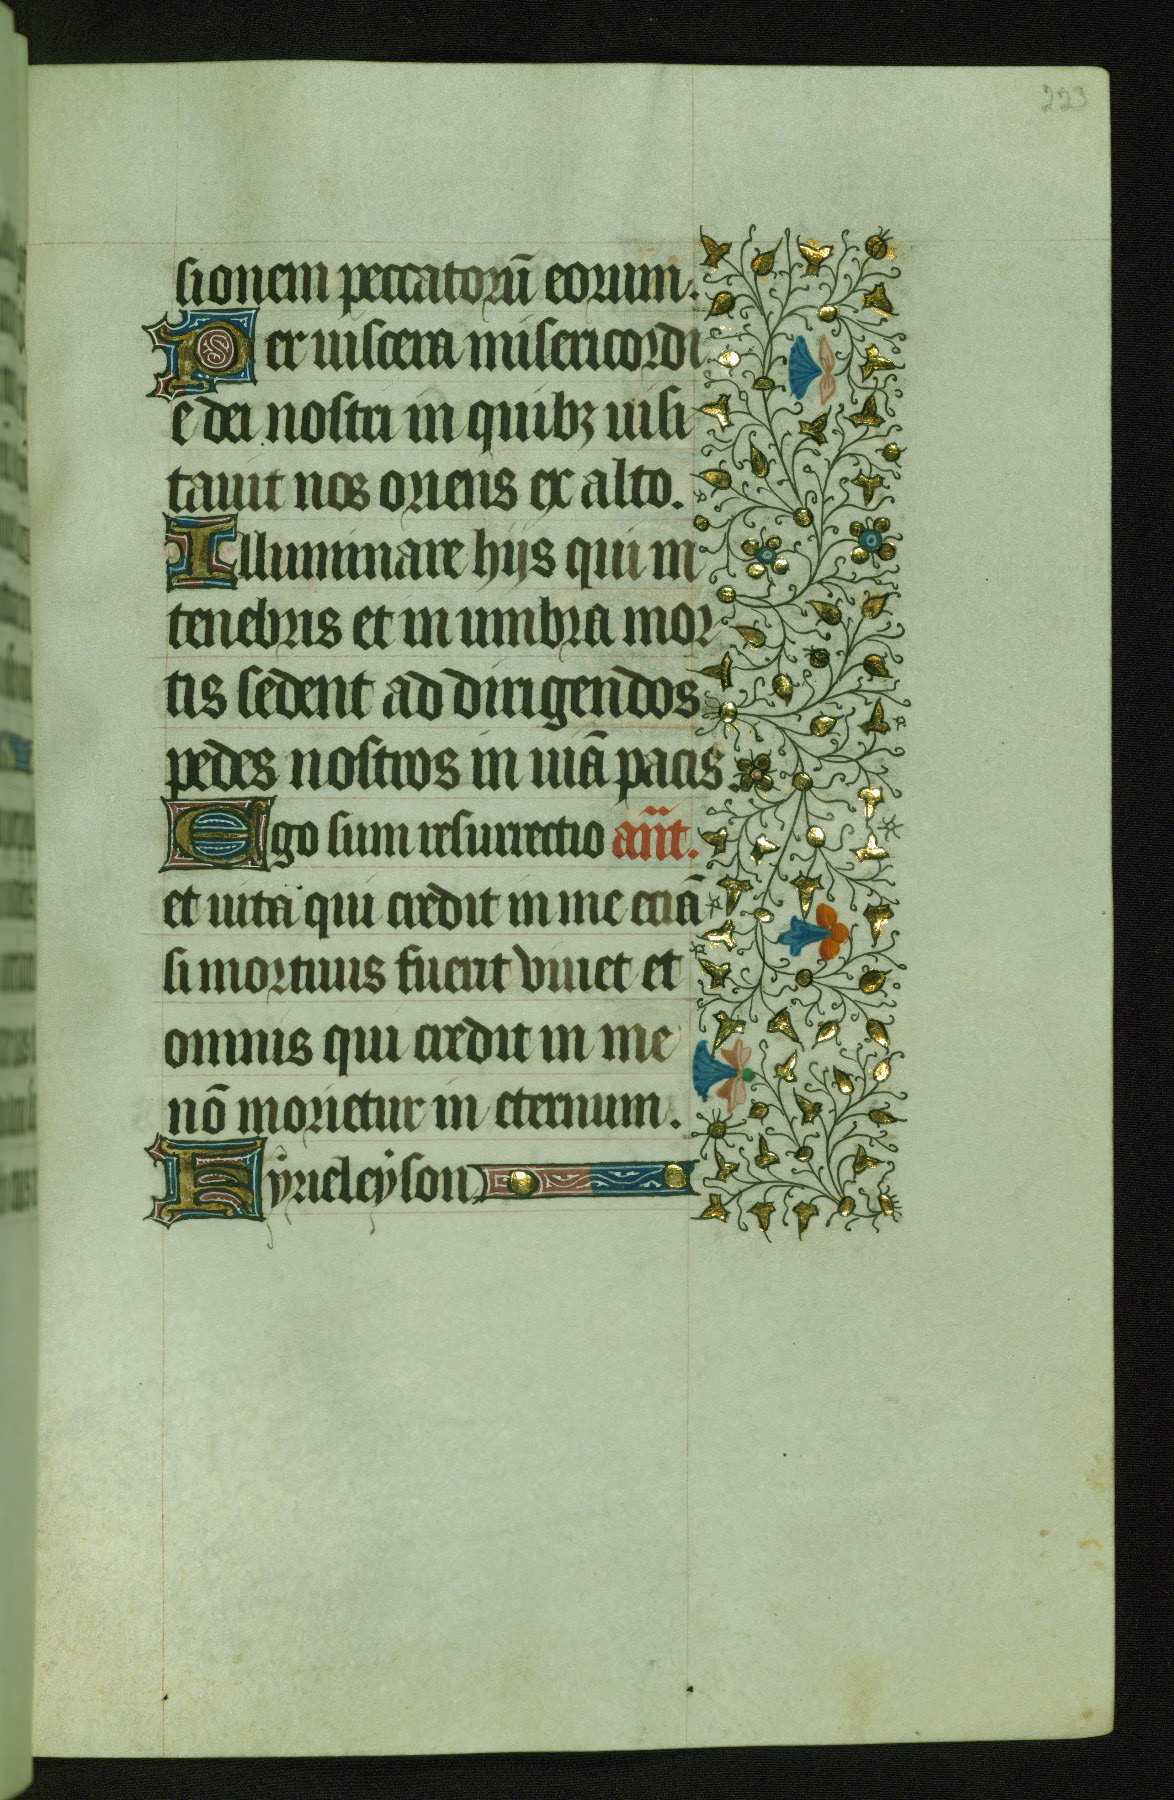 223
sionem peccatorū eorum.
Per uiscera misericordi
e dei nostri in quibꝫ uisi
tauit nos oriens ex alto.
Illuminare hijs qui in
tenebris et in umbra mor
tis sedent ad dirigendos
pedes nostros in uiā pacis.
Ego sum resurrectio an̄t.
et uita qui credit in me eciā
si mortuus fuerit viuet et
omnis qui credit in me
nō morietur in eternum.
Kyrieleyson